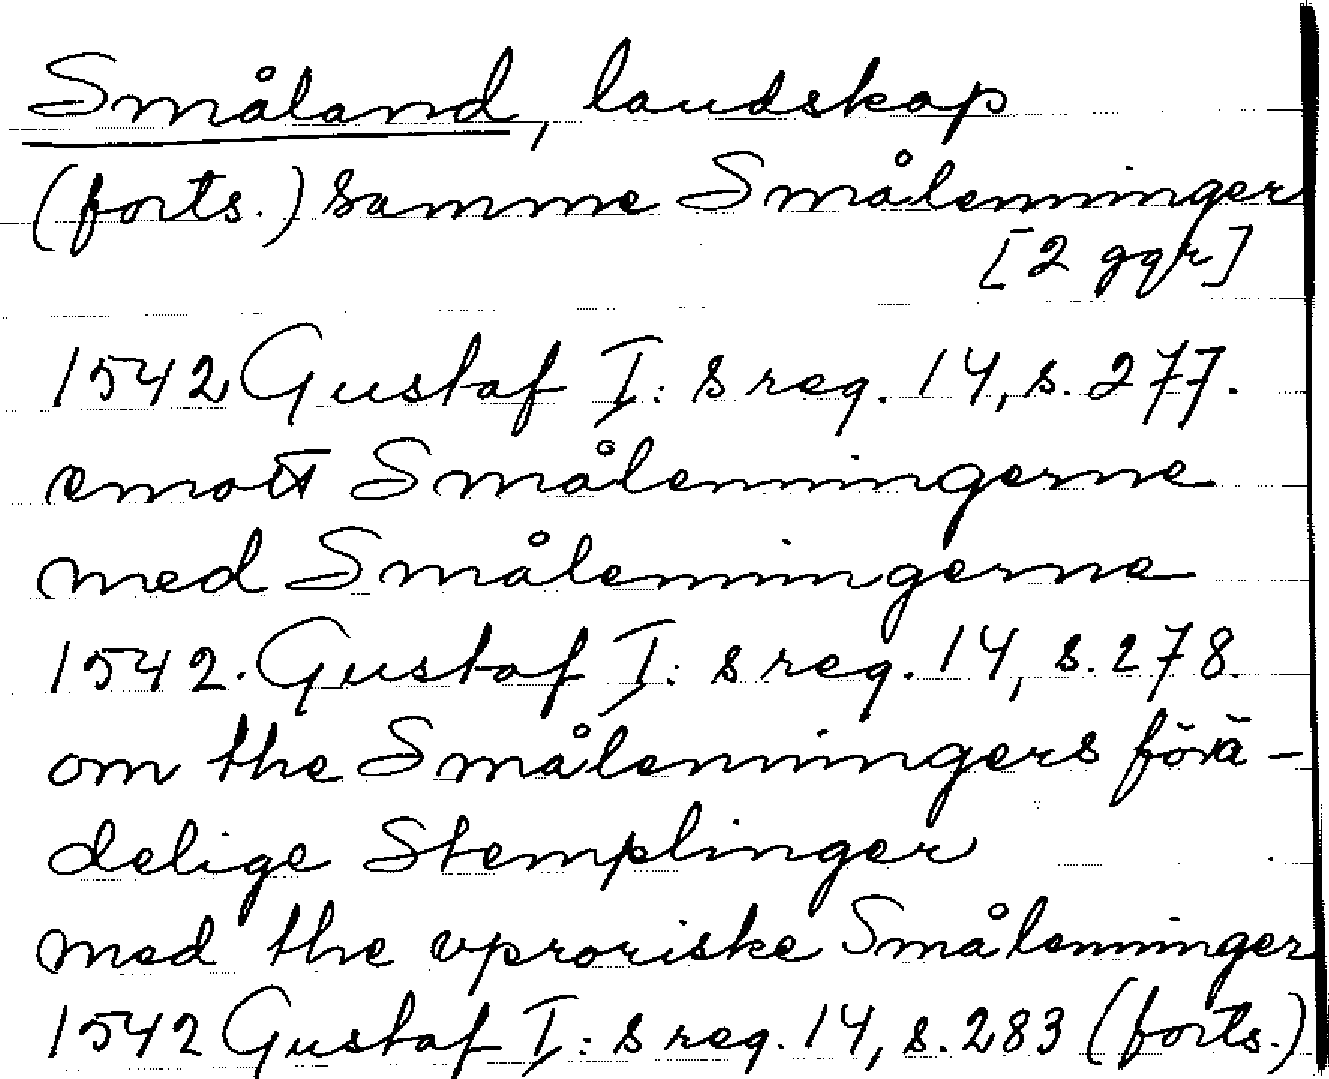 Småland, landskap
(forts.) samme Smålenninger
[2 ggr]
1542 Gustaf I:s reg. 14, s. 277.
emott Smålenningerne
med Smålenningerne
1542. Gustaf I:s reg. 14, s. 278.
om the Smålenningers förä-
delige Stemplinger
med the vproriske Smålenninger
1542 Gustaf I:s reg. 14, s. 283 (forts.)